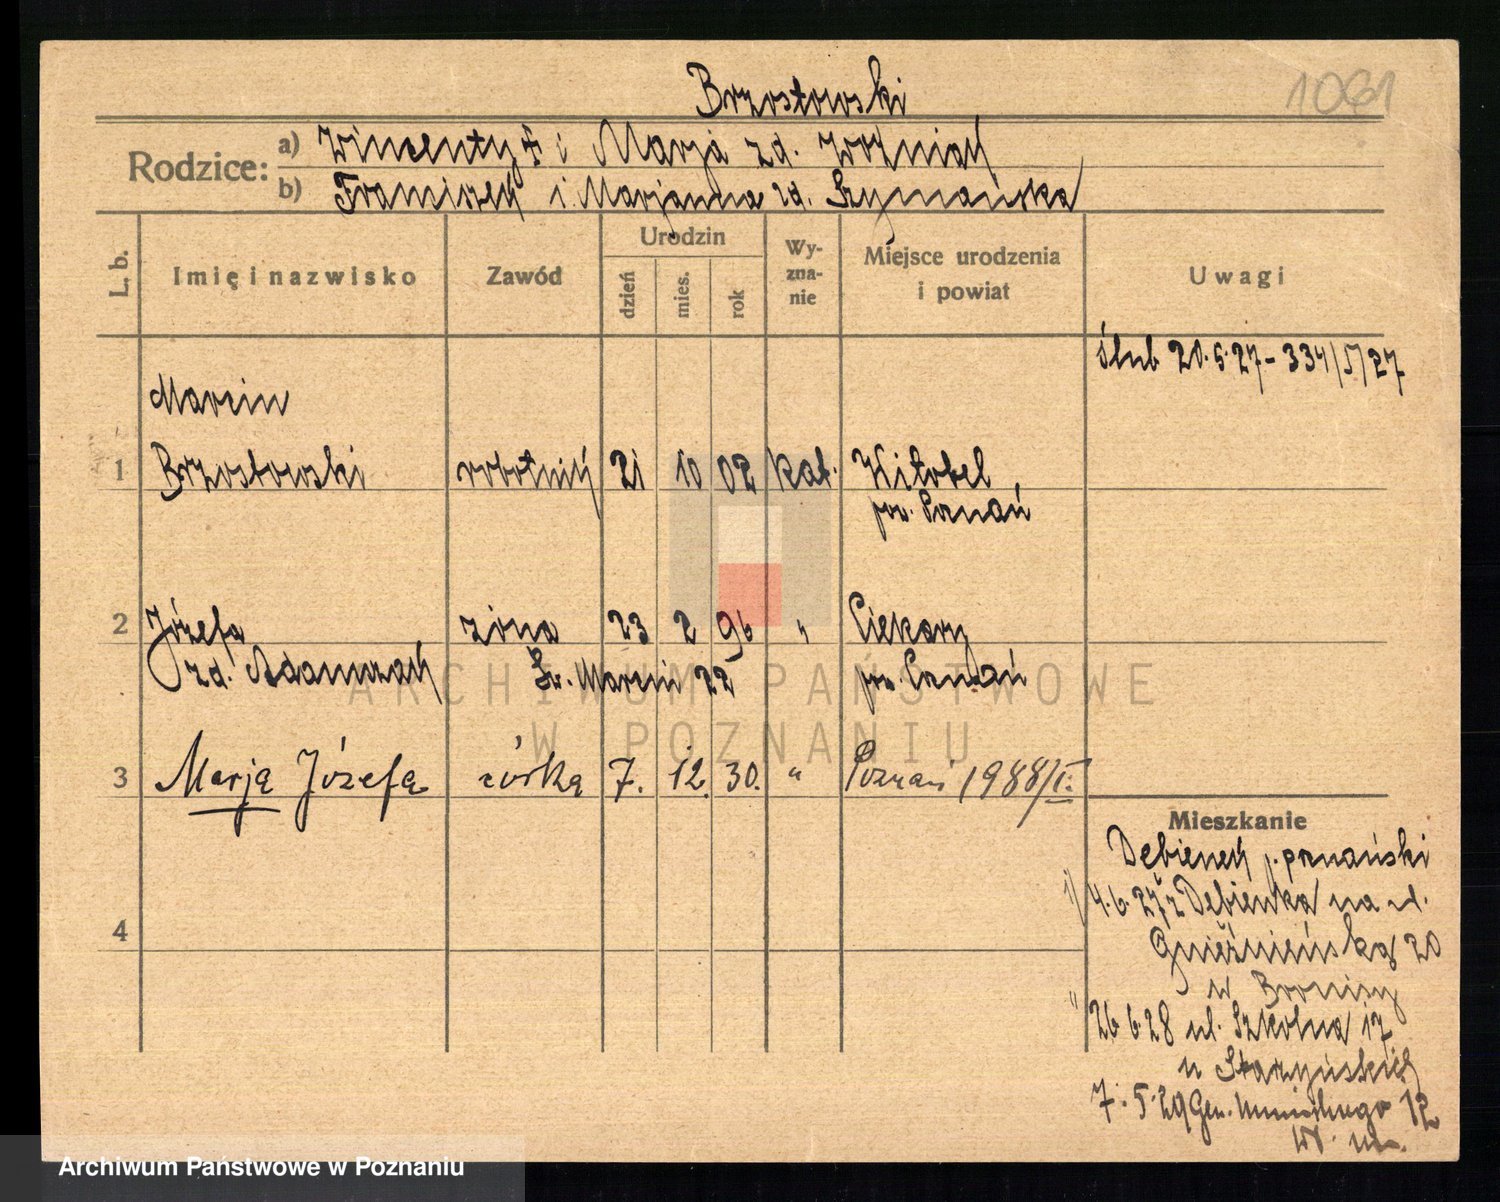 Brzostowski
1061
Rodzice: a) Wincenty i Marja zd. Woźniak
b) Franciszek i Marjanna zd. Szymańska
L. b.
Imię i nazwisko
Zawód
Urodzin
dzień
mies.
rok
Wy-
zna-
nie
Miejsce urodzenia
i powiat
Uwagi
ślub 20.5.27 - 334/5/27
Marcin
1 Brzostowski robotnik 21 10 02 kat.
pow. Poznań
2 Józefa żona 23 2 96 „
zd. Adamczak Św. Marcin 22 pow. Poznań
3 Marja Józefa córka 7. 12. 30. „ Poznań 1988/I.
4
Mieszkanie
Dębienek p. poznański
4.6.27 z Dębienka na ul.
Gnieźnieńska 20
26 6 28 ul. Szkolna 17
u Starzyńskich
7.5.29 Gen. 12
ARCHIWUM PAŃSTWOWE
W POZNANIU
Archiwum Państwowe w Poznaniu